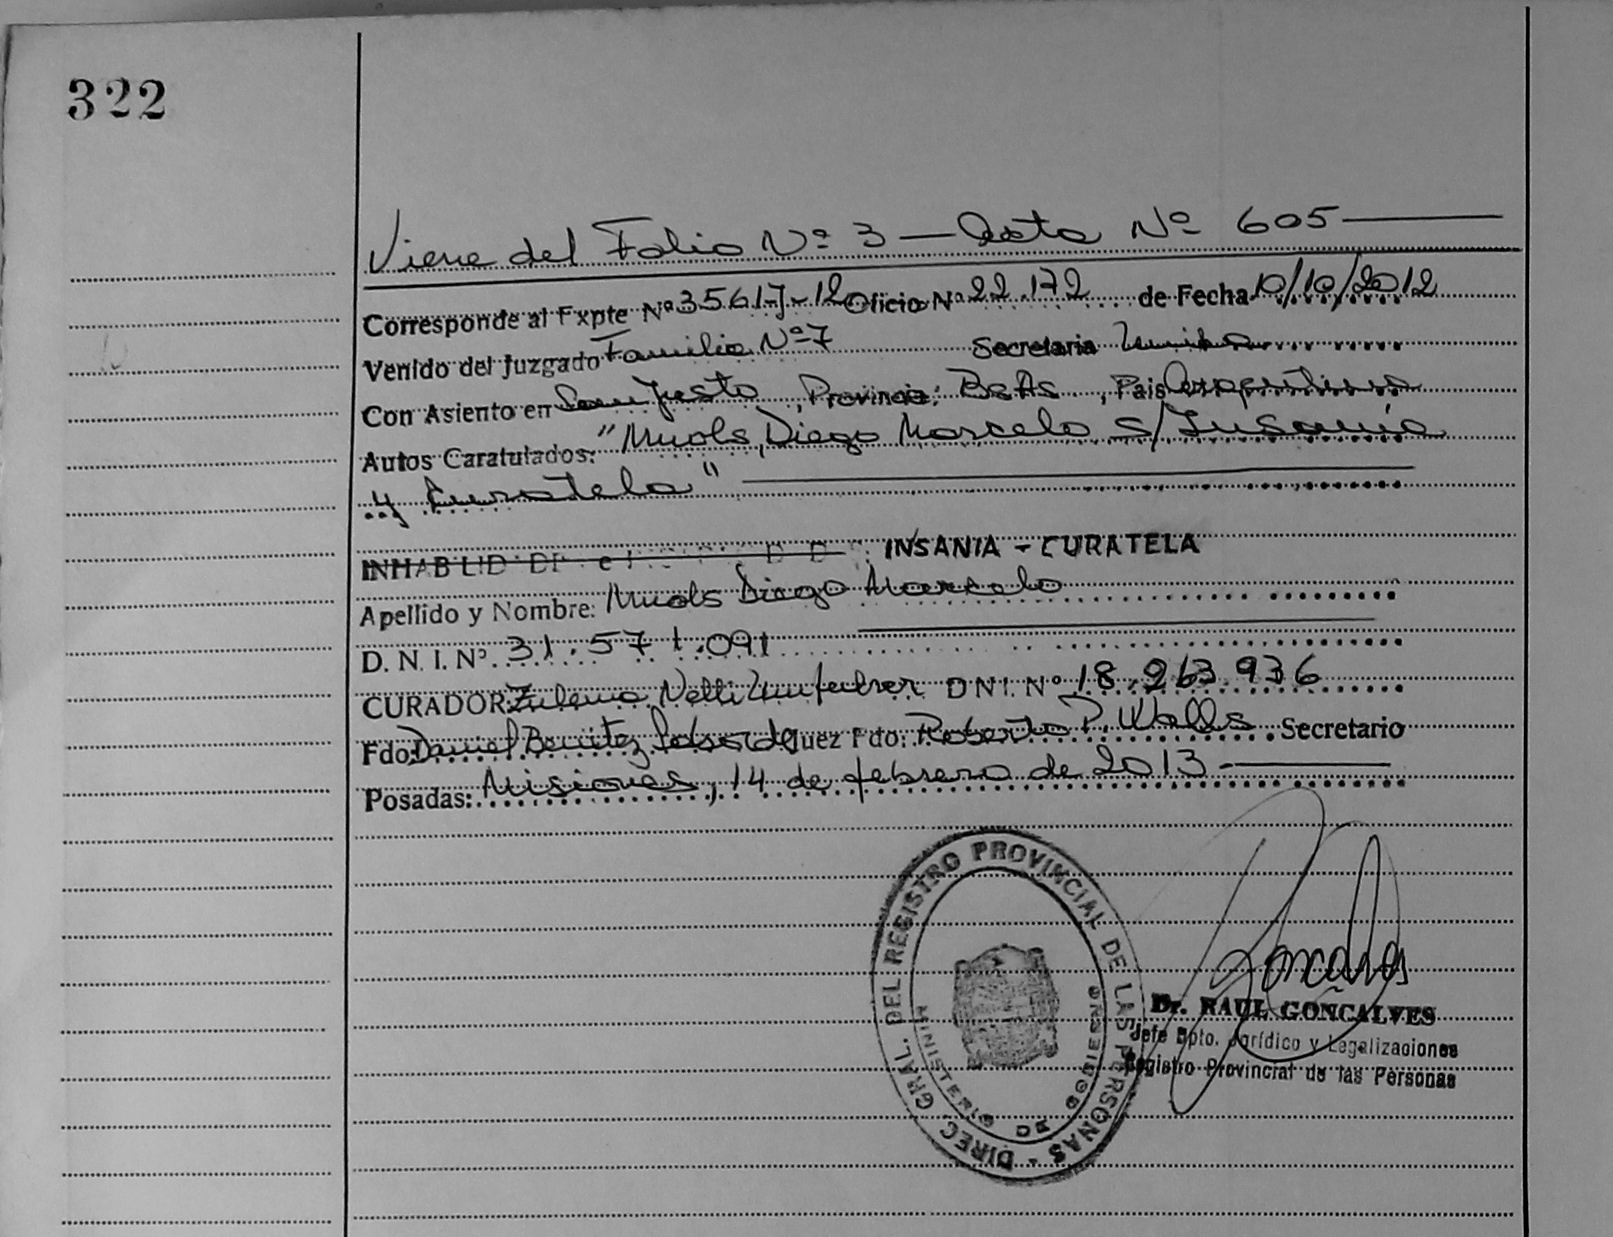 322
Viene del Folio Nº 3 — Acta Nº 605
Corresponde al Expte Nº 35617-12 Oficio Nº 22.172 de Fecha 10/10/2012
Venido del Juzgado Familia Nº 7 Secretaria Unica
Con Asiento en San Justo, Provincia: Bs As., Pais Argentina
Autos Caratulados: " Diego Marcelo s/ Insania
y Curatela"
INHABILID INSANIA - CURATELA
Apellido y Nombre: Diego Marcelo
D. N. I. Nº 31.571.091
CURADOR: Zulema Nelli DNI. Nº 18.263.936
Fdo Daniel Benitez Juez Fdo: Roberto P. Walls Secretario
Posadas: Misiones, 14 de febrero de 2013 -
DIREC. GRAL. DEL REGISTRO PROVINCIAL DE LAS PERSONAS -
MINISTERIO DE GOBIERNO
Dr. RAUL GONCALVES
Jefe Dpto. Jurídico y Legalizaciones
Registro Provincial de las Personas